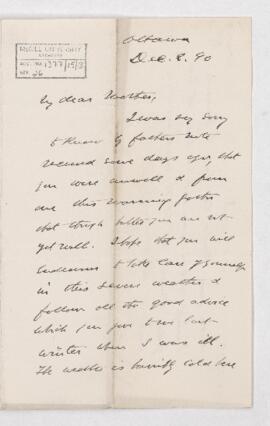 McGILL UNIVERSITY
ARCHIVES
ACC. NO. 1377/15/3
REF. 26
Ottawa
Dec. 2. 90
My dear Mother,
I was very sorry
to know by father's note
received some days ago, that
you were unwell & from
one this morning further
that though better you are not
yet well. I hope that you will
endeavour to take care of yourself
in this severe weather &
follow all the good advice
which you gave to me last
winter when I was ill.
The weather is horribly cold here